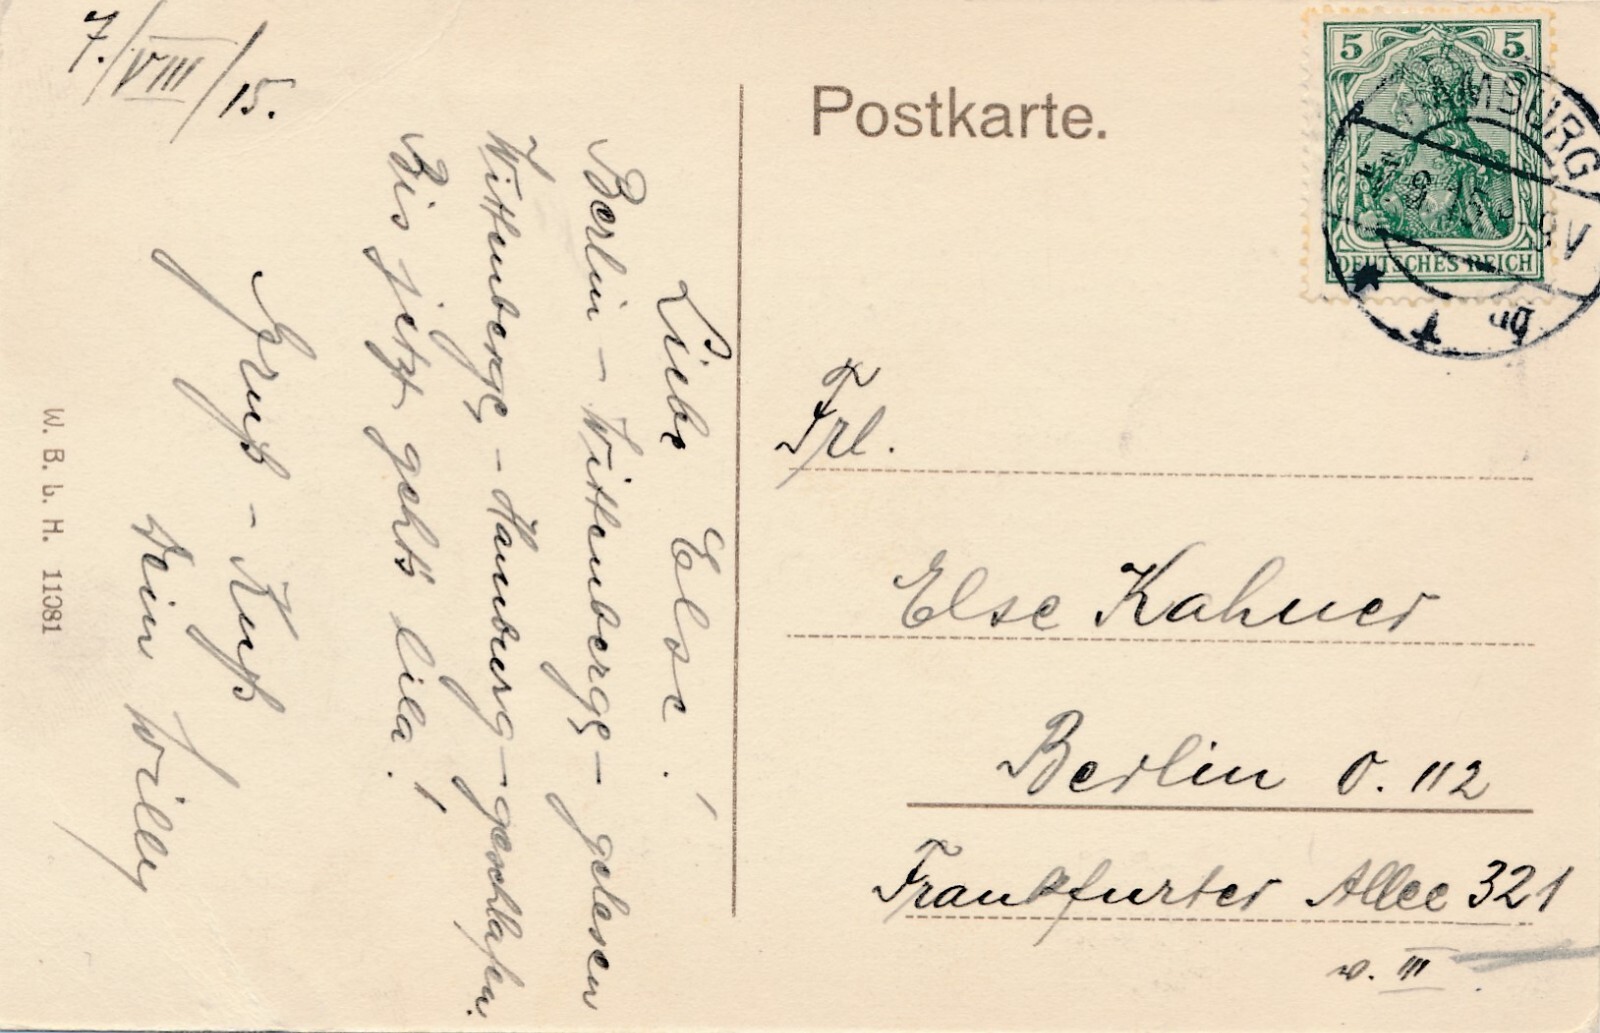 7./VIII/15.
Liebe Else!
Berlin – Wittenberge – gelesen
Wittenberge – Hamburg – geschlafen.
Bis jetzt geht's lila!
Gruß – Kuß
Dein Willy
W. B. L. H. 11081
Postkarte.
5 5
DEUTSCHES REICH
HAMBURG
8.15. 8-9 V
* 1 *
Frl.
Else Kahner
Berlin O. 112
Frankfurter Allee 321
v. III